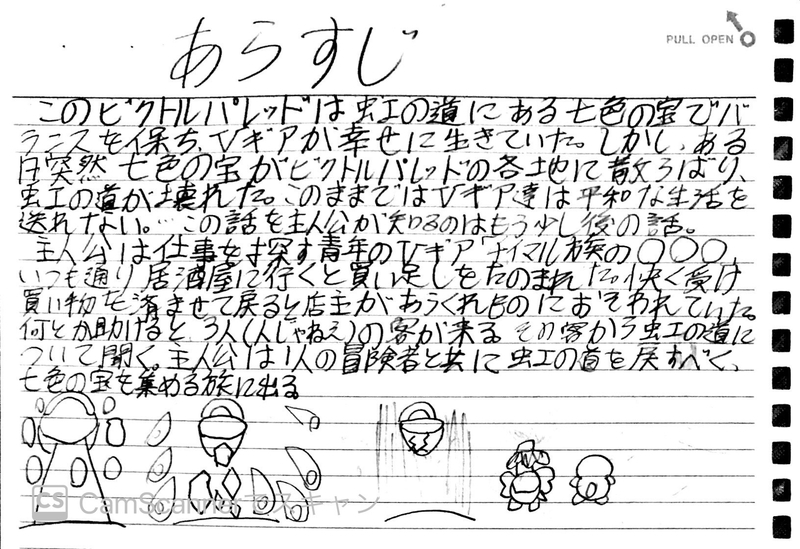 PULL OPEN
あらすじ
このビクトルパレッドは虹の道にある七色の宝でバ
ランスを保ち、Vギアが幸せに生きていた。しかし、ある
日突然七色の宝がビクトルパレッドの各地に散らばり、
虹の道が壊れた。このままではVギア達は平和な生活を
送れない。…この話を主人公が知るのはもう少し後の話。
主人公は仕事を探す青年のVギア ナイマル族の〇〇〇、
いつも通り居酒屋に行くと買い足しをたのまれた。快く受け
買い物を済ませて戻ると店主があらくれものにおそわれていた。
何とか助けると、3人(人じゃねえ)の客が来る その客から虹の道に
ついて聞く。主人公は1人の冒険者と共に虹の道を戻すべく、
七色の宝を集める旅に出る
CS CamScannerでスキャン